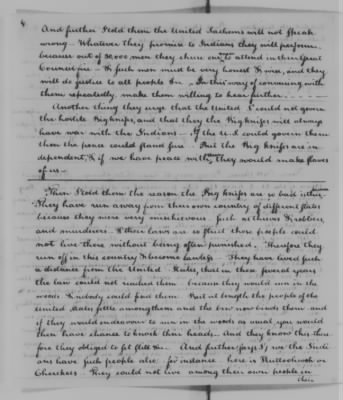 4
And further I told them the United Sachems will not speak
wrong. Whatever they promise to Indians they will perform.
because out of 30,000 men they chuse one to attend in their Great
Council fire. & such men must be very honest & wise, and they
will do justice to all people &c. In this way of conversing with
them repeatedly, make them willing to hear further
Another thing they urge that the United S. could not govern
the hostile Big knifes, and that they the Big knifes will always
have war with the Indians. If the U.S. could govern them
then the peace could stand sure. But the Big knifes are in
dependent, & if we have peace with them, they would make slaves
of us
Then I told them the reason the Big knifes are so bad
They have run away from their own country of different States
because they were very mischievous, such as thieves & robbers,
and murderers. & their laws are so strict these people could
not live there without being often punished. Therefore they
run off in this country & become lawless. They have lived such
a distance from the United States, that in these several years
the law could not reached them because they would run in the
woods & nobody could find them. But at length the people of the
United States settle among them and the law now binds them and
if they would endeavour to run in the woods as usual you would
then have chance to knock their heads. and they know this there
fore they obliged to set still &c. And further says I, we the Indi
ans have such people also for instance here is
Cherekees. They could not live among their own people in
their